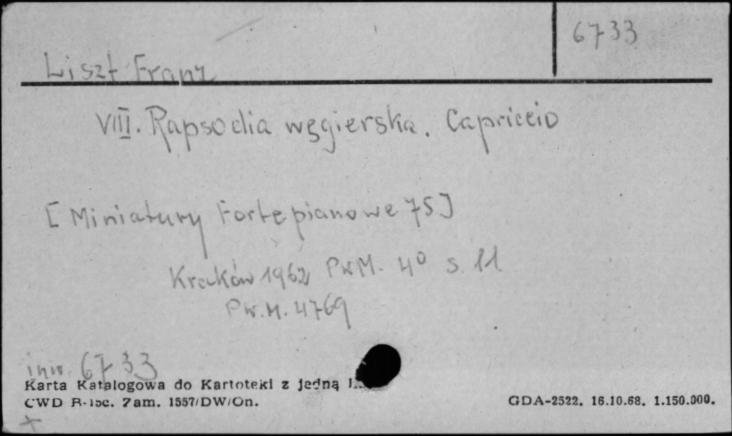 6733
Liszt Franz
VIII. Rapsodia węgierska. Capriccio
[Miniatury Fortepianowe 75]
Kraków 1962 PWM. 4° s. 11
P.W.M. 4769
inw. 6733
Karta Katalogowa do Kartoteki z jedną
CWD Zam. 1557/DW/On.
GDA-2522. 16.10.68. 1.150.000.